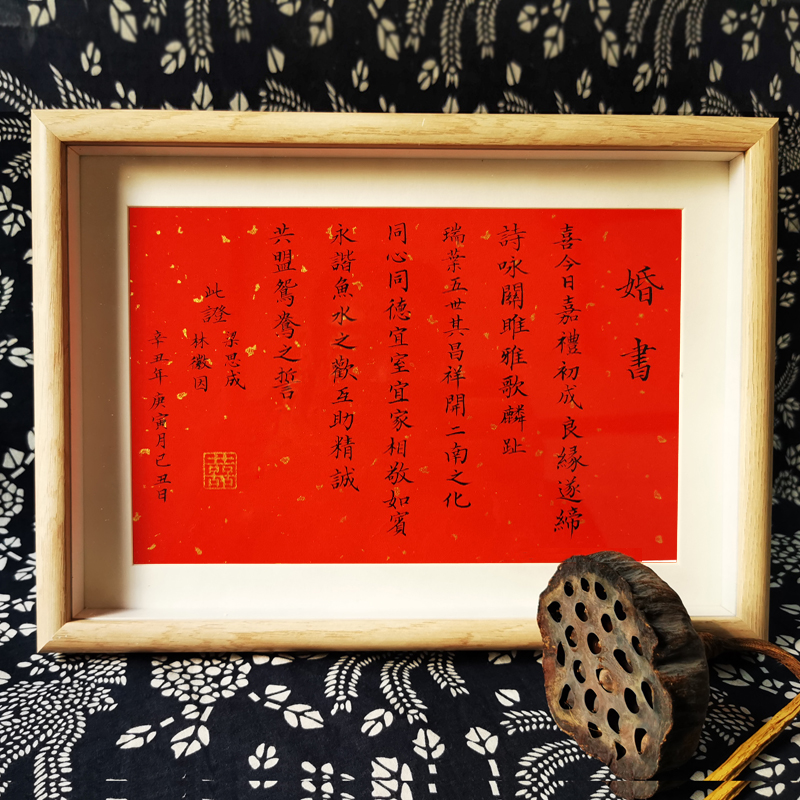 婚書
喜今日嘉禮初成良緣遂締
詩咏關雎雅歌麟趾
瑞葉五世其昌祥開二南之化
同心同德宜室宜家相敬如賓
永諧魚水之歡互助精誠
共盟鴛鴦之誓
此證
梁思成
林徽因
辛丑年庚寅月己丑日
囍